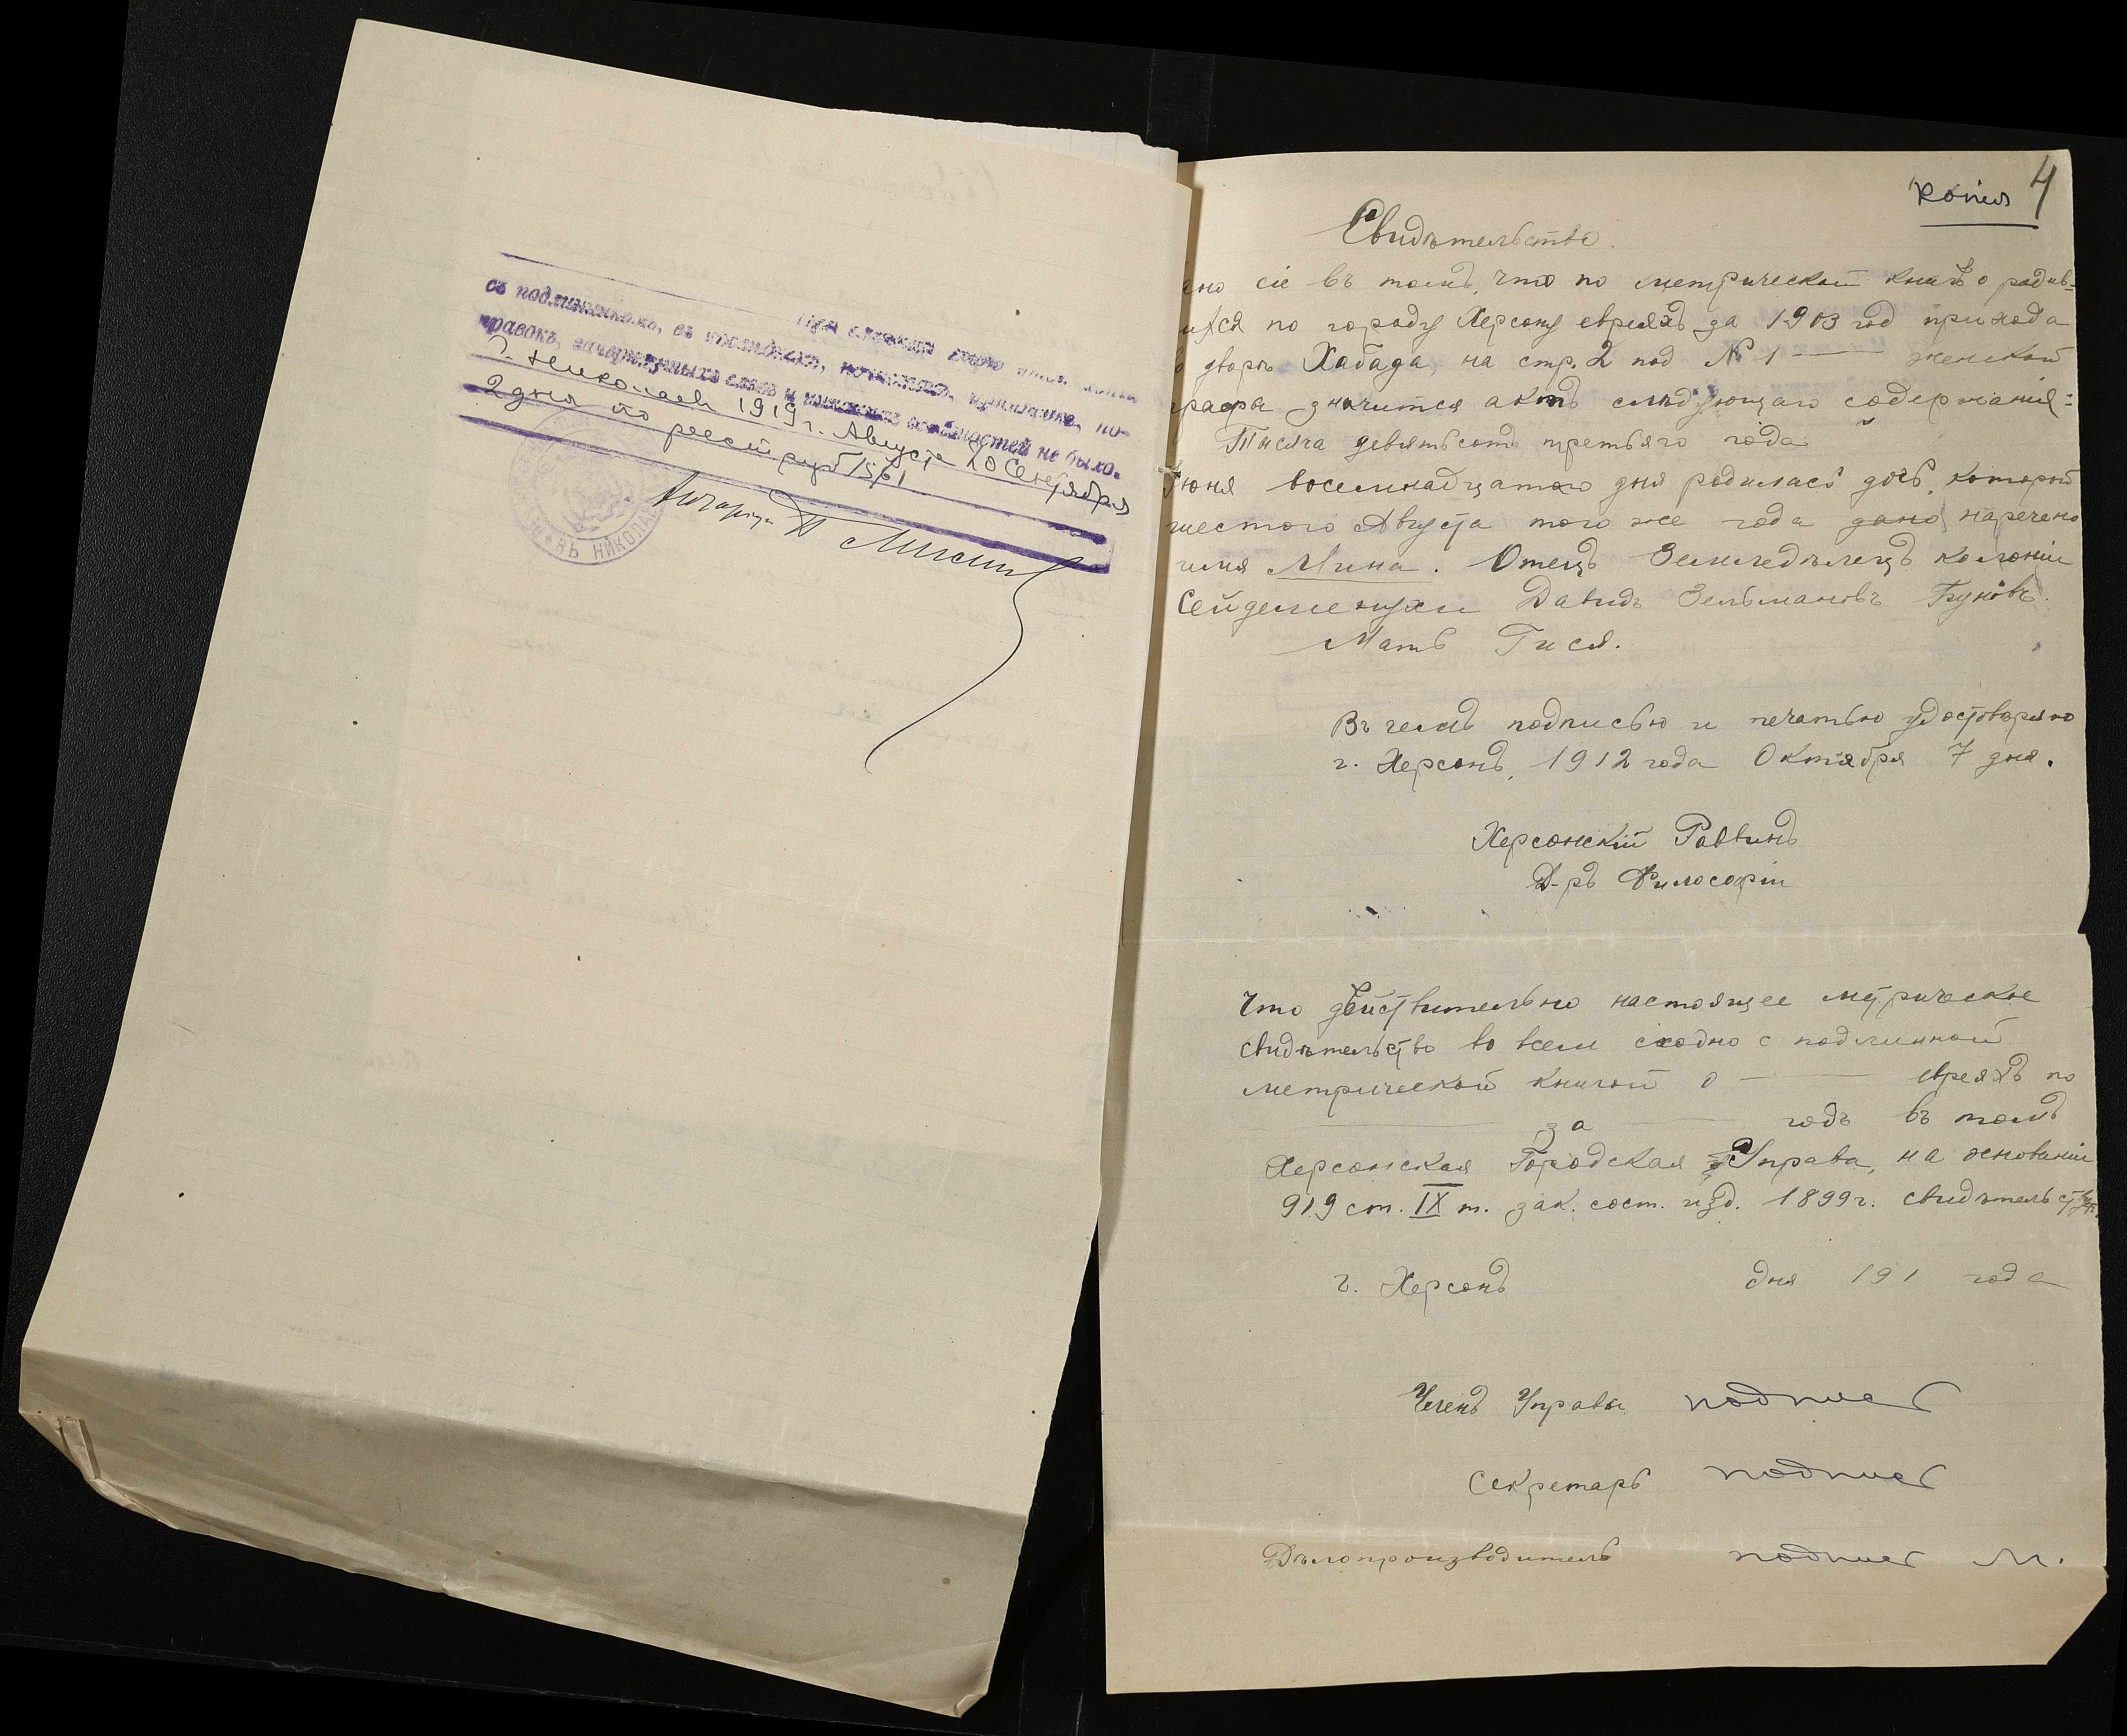 При сличеніи сего
съ подлинникомъ, въ послѣднемъ, почистокъ, приписокъ, по-
правокъ, зачеркнутыхъ словъ и никакихъ особенностей не было.
Г. Николаевъ 1919 г. Августа 20 Сентября
2 дня по реестру № 1561
Нотаріусъ
НИКОЛА
Копія 4
Свидѣтельство.
ано сіе въ томъ, что по метрической книгѣ о родив-
ихся по городу Херсону евреяхъ за 1903 год прихода
дворъ Хабада, на стр. 2 под № 1 — женской
графы значится актъ слѣдующаго содержанія:
Тысяча девятьсотъ третьяго года
Іюня восемнадцатаго дня родилась дочь, которой
шестого Августа того же года дано наречено
имя Мина. Отецъ Земледѣлецъ колоніи
Сейдеменухи Давидъ Зельмановъ Буновъ.
Мать Гися.
Въ чемъ подписью и печатью удостоверяю
г. Херсонъ, 1912 года Октября 7 дня.
Херсонскій Раввинъ
Д-ръ Философіи
Что дѣйствительно настоящее метрическое
свидѣтельство во всем сходно с подлинной
метрической книгой о — евреяхъ по
— за — годъ въ томъ
Херсонская Городская Управа, на основаніи
919 ст. IX т. зак. сост. изд. 1899 г. свидѣтельствуе
г. Херсонъ дня 191 года
Членъ Управы подпись
Секретарь подпись
Дѣлопроизводитель подпись М.